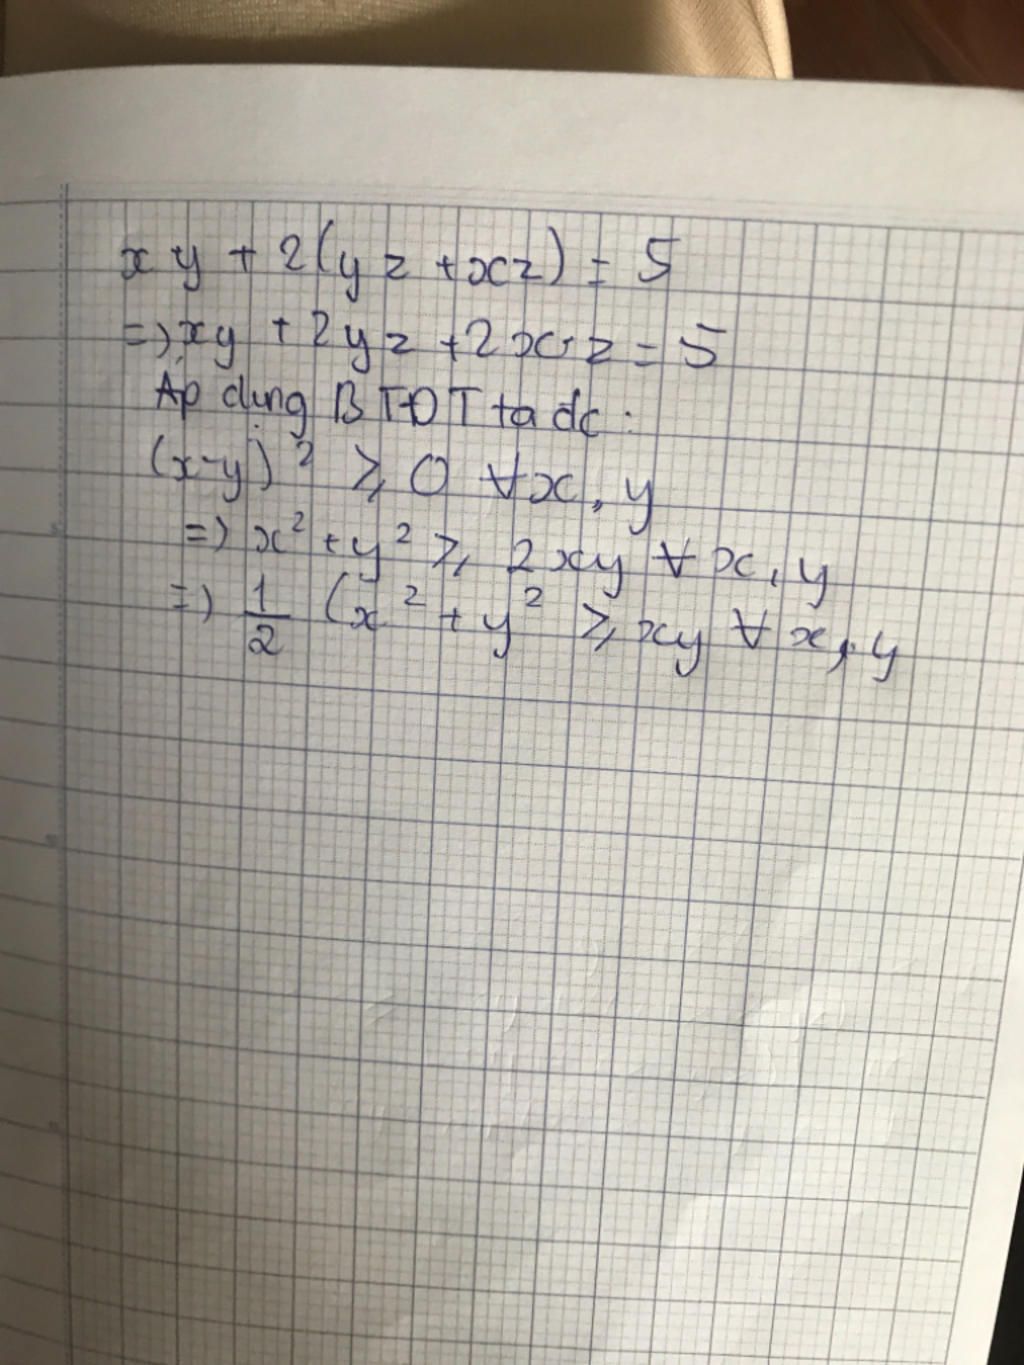 xy + 2(yz + xz) = 5
=> xy + 2yz + 2xz = 5
Áp dụng BTĐT ta dc :
(x-y)² ≥ 0 ∀x, y
=> x² + y² ≥ 2xy ∀x, y
=> 1/2 (x² + y² ≥ xy ∀x, y